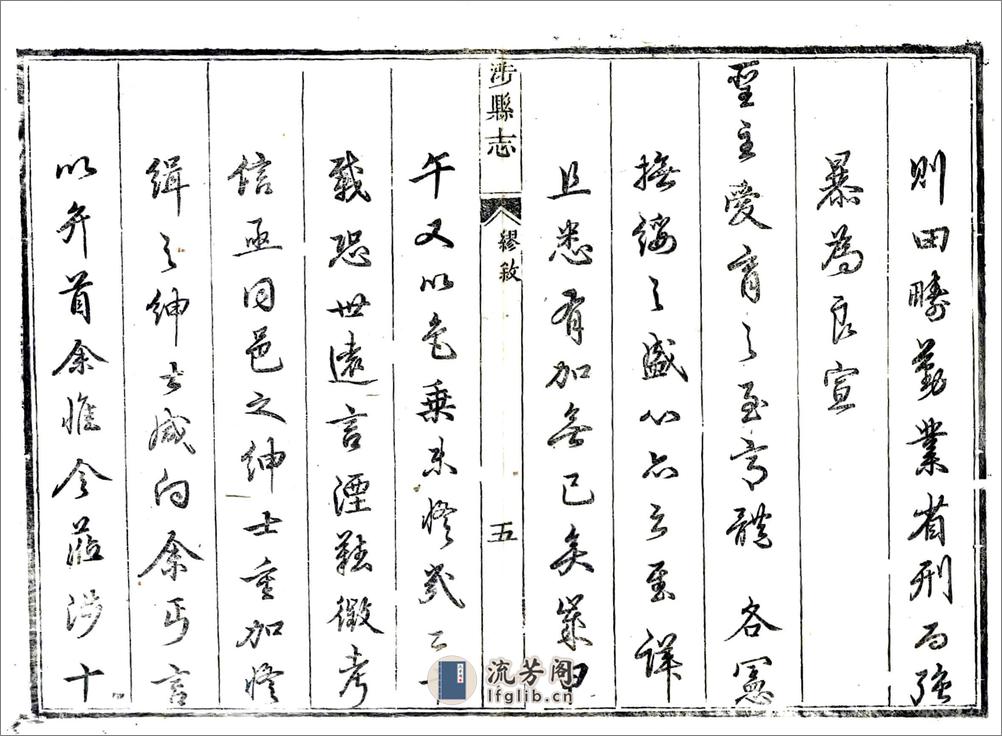 則田疇勤業省刑而強
暴為良宣
聖主愛育之至意體　各憲
撫綏之盛心亦云至詳
且悉有加無已矣歲甲
涉縣志
繆敘
五
午又以邑乘未修幾二十
載恐世遠言湮難徵考
信亟同邑之紳士重加修
緝之紳士咸向余丐言
以弁首余惟令蒞涉十
流芳阁
lfglib.cn